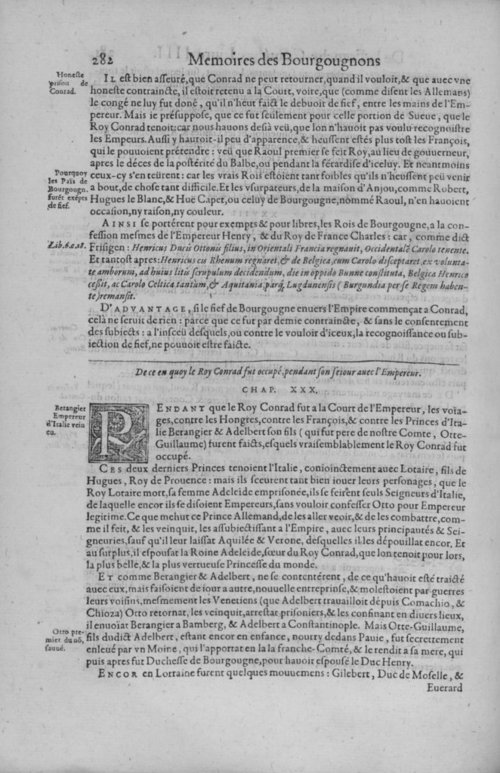 282 Memoires des Bourgougnons
Honeste
prison de
Conrad.
IL est bien asseuré, que Conrad ne peut retourner, quand il vouloit, & que auec vne
honeste contraincte, il estoit retenu a la Court, voire, que (comme disent les Allemans)
le congé ne luy fut doné, qu'il n'heut faict le debuoir de fief, entre les mains de l'Em-
pereur. Mais ie présuppose, que ce fut seulement pour celle portion de Sueue, que le
Roy Conrad tenoit: car nous hauons desià veü, que lon n'hauoit pas voulu recognoistre
les Empeurs. Aussi y hauroit-il peu d'apparence, & heussent estés plus tost les François,
qui le pouuoient prétendre: veu que Raoul premier se feit Roy, au lieu de gouuerneur,
apres le déces de la postérité du Balbe, ou pendant la fétardise d'iceluy. Et neantmoins
Pourquoy
les Païs de
Bourgougn.
furêt exëpts
de fief.
ceux-cy s'en teürent: car les vrais Rois estoient tant foibles qu'ils n'heussent peü venir
a bout, de chose tant difficile. Et les vsurpateurs, de la maison d'Anjou, comme Robert,
Hugues le Blanc, & Hue Capet, ou celuy de Bourgougne, nommé Raoul, n'en hauoient
occasion, ny raison, ny couleur.
AINSI se portérent pour exempts & pour libres, les Rois de Bourgougne, a la con-
fession mesmes de l'Empereur Henry, & du Roy de France Charles: car, comme dict
Lib.6.c.18.
Frisigen: Henricus Ducis Ottonis filius, in Orientali Francia regnauit, Occidentalē Carolo tenente.
Et tantost apres: Henricus cis Rhenum regnaret, & de Belgica cum Carolo disceptaret ex volunta-
te amborum, ad huius litis scrupulum decidendum, die in oppido Bunne constituta, Belgica Henrico
cessit, ac Carolo Celtica tantum, & Aquitania parsq; Lugdunensis (Burgundia per se Regem haben-
te) remansit.
D'AVANTAGE, si le fief de Bourgougne enuers l'Empire commençat a Conrad,
celà ne seruit de rien: parce que ce fut par demie contraincte, & sans le consentement
des subiects: a l'insceü desquels, ou contre le vouloir d'iceux, la recognoissance ou sub-
iection de fief, ne pouuoit estre faicte.
De ce en quoy le Roy Conrad fut occupé, pendant son seiour auec l'Empereur.
CHAP. XXX.
Berangier
Empereur
d'Italie vein
cu.
PENDANT que le Roy Conrad fut a la Court de l'Empereur, les voia-
ges, contre les Hongres, contre les François, & contre les Princes d'Ita-
lie Berangier & Adelbert son fils (qui fut pere de nostre Comte, Otte-
Guillaume) furent faicts, esquels vraisemblablement le Roy Conrad fut
occupé.
CES deux derniers Princes tenoient l'Italie, conioinctement auec Lotaire, fils de
Hugues, Roy de Prouence: mais ils sceurent tant bien iouer leurs personages, que le
Roy Lotaire mort, sa femme Adeleide emprisonée, ils se feirent seuls Seigneurs d'Italie,
de laquelle encor ils se disoient Empereurs, sans vouloir confesser Otto pour Empereur
legitime. Ce que mehut ce Prince Allemand, de les aller veoir, & de les combattre, com-
me il feit, & les veinquit, les assubiectissant a l'Empire, auec leurs principautés & Sei-
gneuries, sauf qu'il leur laissat Aquilée & Verone, desquelles il les dépouillat encor. Et
au surplus, il espousat la Roine Adeleide, sœur du Roy Conrad, que lon tenoit pour lors,
la plus belle, & la plus vertueuse Princesse du monde.
ET comme Berangier & Adelbert, ne se contentérent, de ce qu'hauoit esté traicté
auec eux, mais faisoient de iour a autre, nouuelle entreprinse, & molestoient par guerres
leurs voisins, mesmement les Venetiens (que Adelbert trauailloit depuis Comachio, &
Chioza) Otto retornat, les veinquit, arrestat prisoniers, & les confinant en diuers lieux,
il enuoiat Berangier a Bamberg, & Adelbert a Constantinople. Mais Otte-Guillaume,
Otto pre-
mier du nõ,
sauué.
fils dudict Adelbert, estant encor en enfance, nourry dedans Pauie, fut secrettement
enleué par vn Moine, qui l'apportat en la la franche-Comté, & le rendit a sa mere, qui
puis apres fut Duchesse de Bourgougne, pour hauoir espousé le Duc Henry.
ENCOR en Lorraine furent quelques mouuemens: Gilebert, Duc de Moselle, &
Euerard